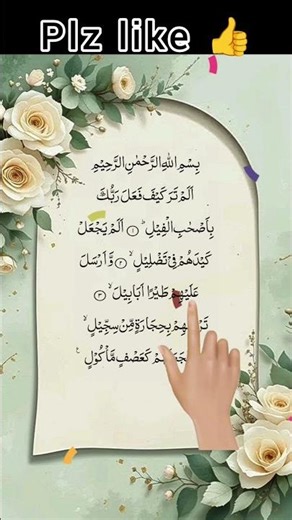 Plz like 👍
بِسْمِ اللهِ الرَّحْمٰنِ الرَّحِيْمِ
اَلَمْ تَرَ كَيْفَ فَعَلَ رَبُّكَ
بِاَصْحٰبِ الْفِيْلِ ؕ ۝۱ اَلَمْ يَجْعَلْ
كَيْدَهُمْ فِيْ تَضْلِيْلٍ ۙ ۝۲ وَّ اَرْسَلَ
عَلَيْهِمْ طَيْرًا اَبَابِيْلَ ۙ ۝۳
بِحِجَارَةٍ مِّنْ سِجِّيْلٍ ۙ
كَعَصْفٍ مَّاْكُوْلٍ